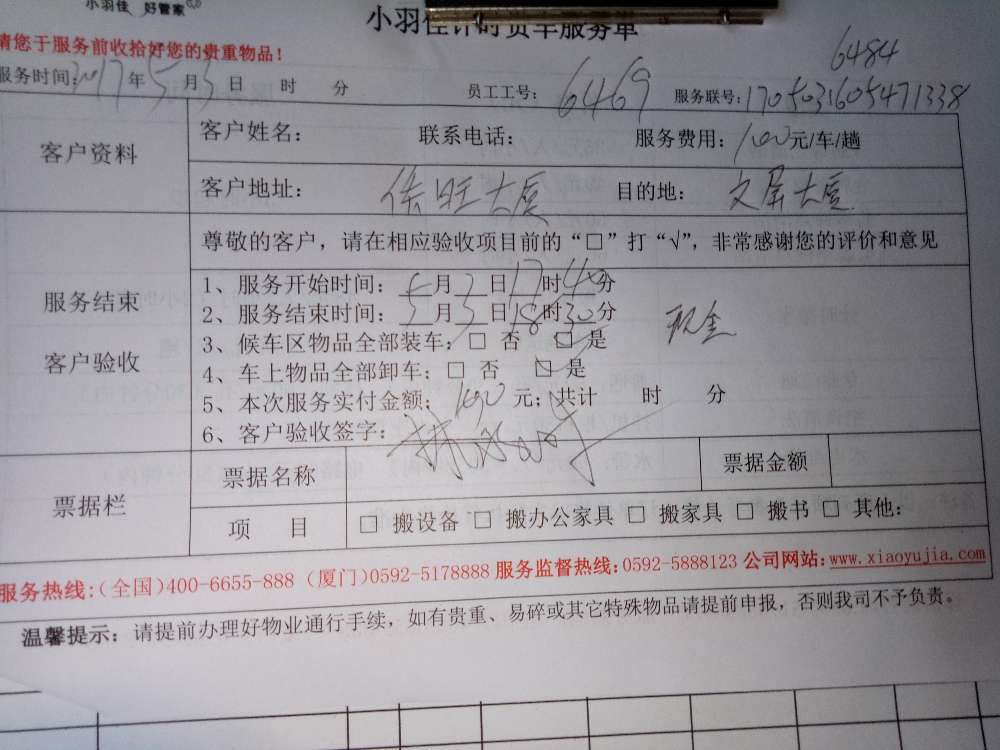 小羽佳 好管家
小羽佳计时货车服务单
请您于服务前收拾好您的贵重物品!
6484
服务时间: 2017年5月3日 时 分 员工工号: 6469 服务联号: 1705031605471338
客户资料
客户姓名: 联系电话: 服务费用: 100元/车/趟
客户地址: 大厦 目的地: 文屏大厦
尊敬的客户，请在相应验收项目前的“□”打“√”，非常感谢您的评价和意见
服务结束
客户验收
1、服务开始时间: 5月3日17时40分
2、服务结束时间: 5月3日18时30分
现金
3、候车区物品全部装车: □ 否 ☑ 是
4、车上物品全部卸车: □ 否 ☑ 是
5、本次服务实付金额: 100元; 共计 时 分
6、客户验收签字:
票据栏
票据名称 票据金额
项 目 □ 搬设备 □ 搬办公家具 □ 搬家具 □ 搬书 □ 其他:
服务热线:(全国)400-6655-888 (厦门)0592-5178888 服务监督热线:0592-5888123 公司网站:www.xiaoyujia.com
温馨提示: 请提前办理好物业通行手续，如有贵重、易碎或其它特殊物品请提前申报，否则我司不予负责。